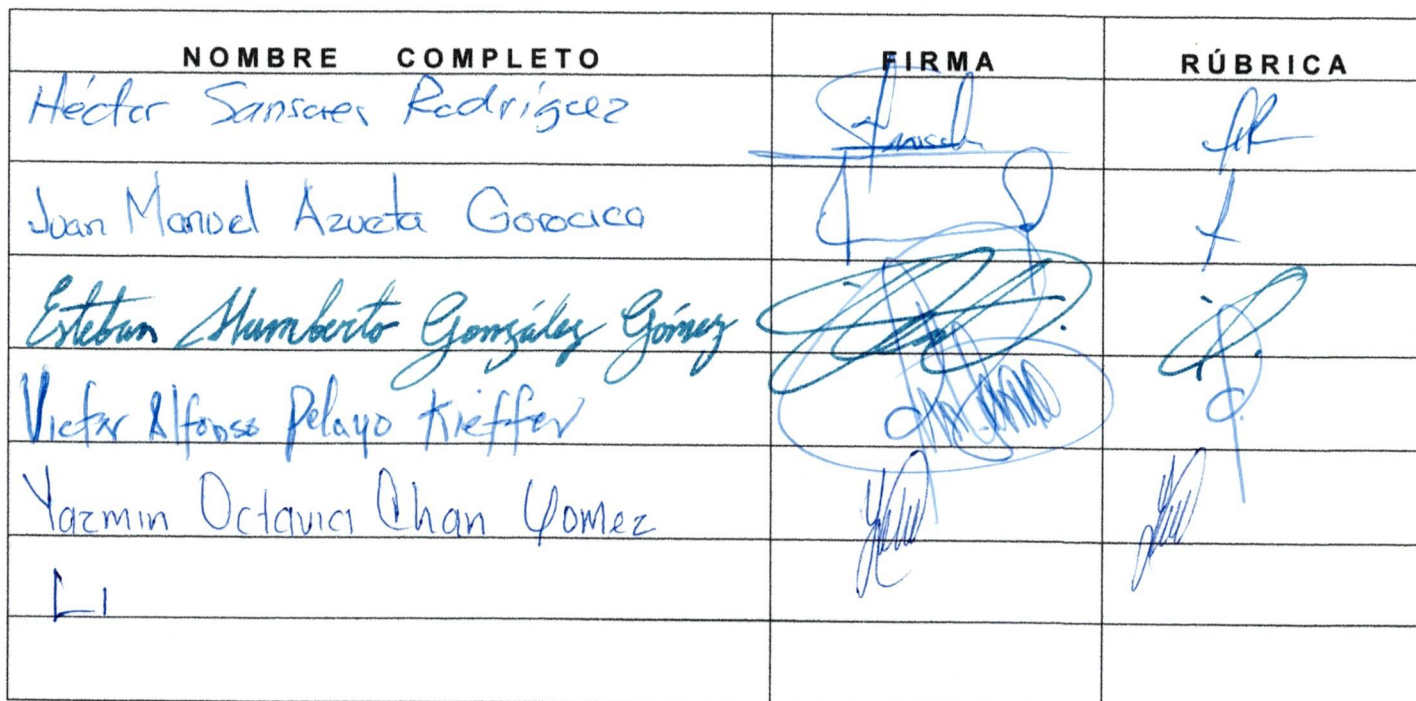 NOMBRE COMPLETO FIRMA RÚBRICA
Héctor Sansores Rodríguez
Juan Manuel Azueta Gorocica
Esteban Humberto González Gómez
Victor Alfonso Pelayo Kieffer
Yazmin Octavia Chan Gomez